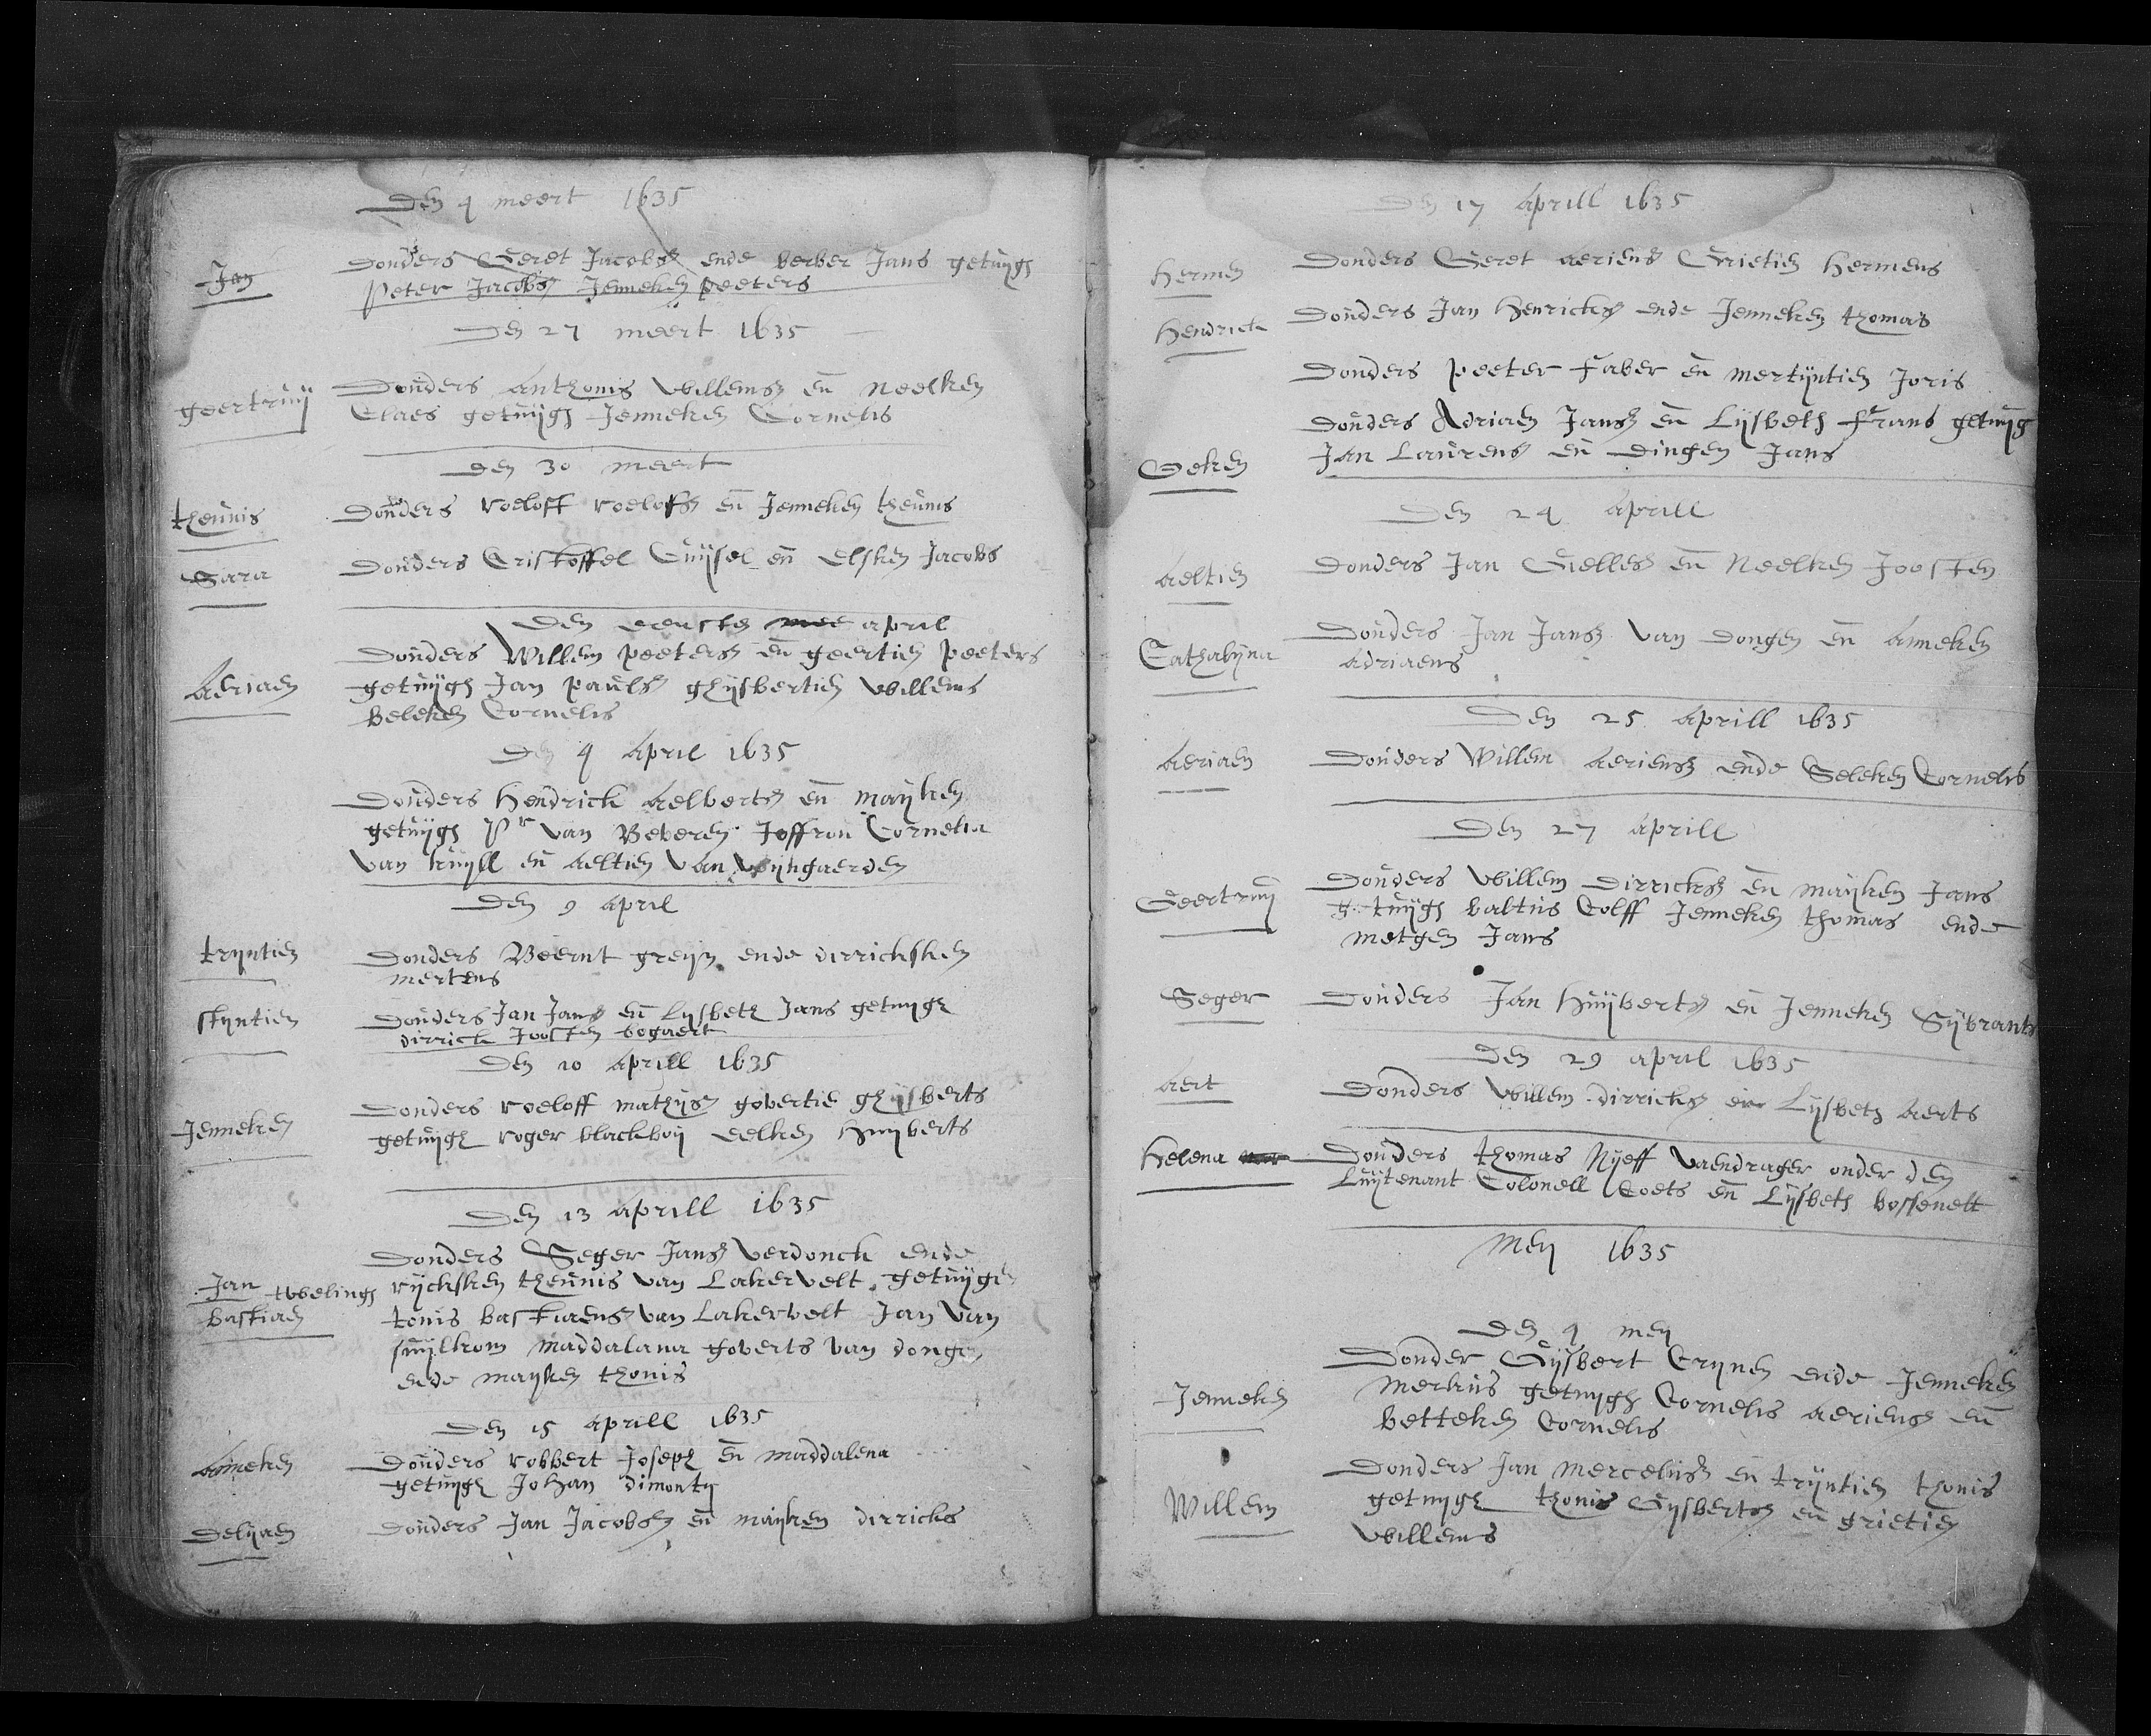 Den 4 meert 1635
Jan
Donders Geret Jacobsz ende berber Jans getuygh
Peter Jacobsz Jenneken peeters
Den 27 meert 1635
geertruij
Donders Anthonis Willemsz en Neelken
Claes getuijgh Jenneken Cornelis
Den 30 meert
theunis
Donders roeloff roelofsz en Jenneken theunis
Sara
Donders Cristoffel Guijsel en Elsken Jacobs
Den eersten april
Aeriaen
Donders Willem peetersz en geertien peeters
getuijgh Jan paulsz ghijsbertien Willems
beleken Cornelis
Den 4 April 1635
Donders Hendrick Aelbertsz en maijken
getuijgh van Beveren Joffrou Cornelia
van kuijll en Aeltien van wijngaerden
Den 9 April
tryntien
Donders Beernt greijn ende dirricksken
mertens
styntien
Donders Jan Jansz en Lysbeth Jans getuygh
dirrick Joosten bogaert
Den 10 Aprill 1635
Jenneken
Donders roeloff mathijsz govertie ghijsberts
getuijgh roger blackboij eelken Huijberts
Den 13 Aprill 1635
Jan
bastiaen
twelingh
Donders Seger Jansz verdonck ende
rijcksken theunis van Lakervelt getuijgh
tonis bastiaensz van Lakervelt Jan van
suijlkom maddalana goverts van dongen
ende mayken thonis
Den 15 Aprill 1635
Anneken
Donders robbert Joseph en maddalena
getuijgh Johan dimonty
Delijaen
Donders Jan Jacobsz en maijken dirricks
Den 17 Aprill 1635
Hermen
Donders Geret Aeriensz Grietien Hermens
Hendrick
Donders Jan Henricksz ende Jenneken thomas
Donders Peeter faber en mertijntien Joris
Donders Adriaen Jansz en Lijsbeth frans getuijg
Geken
Jan Laurensz en Dingen Jans
Den 24 Aprill
Aeltien
Donders Jan Giellesz en Neelken Joosten
Catharyna
Donders Jan Jansz van Dongen en Anneken
Adriaens
Den 25 Aprill 1635
Aeriaen
Donders Willem Aeriensz ende Seleken Cornelis
Den 27 Aprill
Geertruij
Donders Willem Dirricksz en maijken Jans
getuijgh baltus Colff Jenneken thomas ende
metgen Jans
Seger
Donders Jan Huijbertsz en Jenneken Sijbrants
Den 29 april 1635
Aert
Donders Willem dirricksz en Lijsbeth Aerts
Helena
Donders thomas Nijeff vaendrager onder den
Luijtenant Colonell Coets en Lijsbeth bossenett
Meij 1635
Den 4 meij
Jenneken
Donder Gijsbert Crynen ende Jenneken
Merkus getuijgh Cornelis Aeriensz en
betteken Cornelis
Willem
Donders Jan Mercelisz en trijntien thonis
getuijgh thonis Gijsbertsz en grietien
Willems